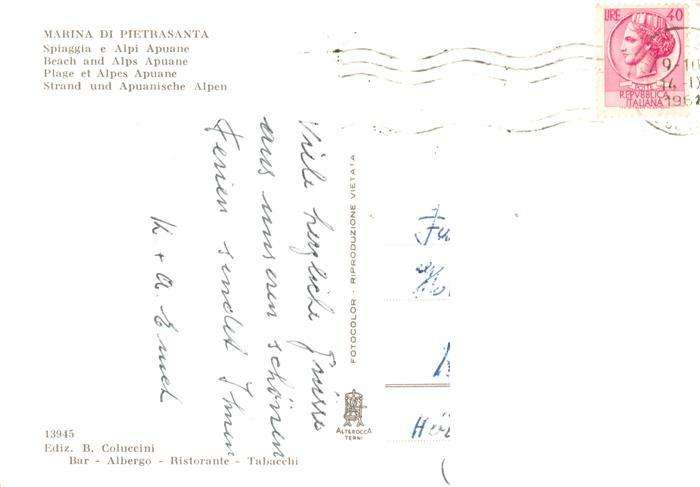 MARINA DI PIETRASANTA
Spiaggia e Alpi Apuane
Beach and Alps Apuane
Plage et Alpes Apuane
Strand und Apuanische Alpen
LIRE 40
REPVBBLICA
ITALIANA
Viele herzliche Grüsse
aus unseren schönen
Ferien sendet Ihnen
K + A.
FOTOCOLOR - RIPRODUZIONE VIETATA
ALTEROCCA
TERNI
13945
Ediz. B. Coluccini
Bar - Albergo - Ristorante - Tabacchi